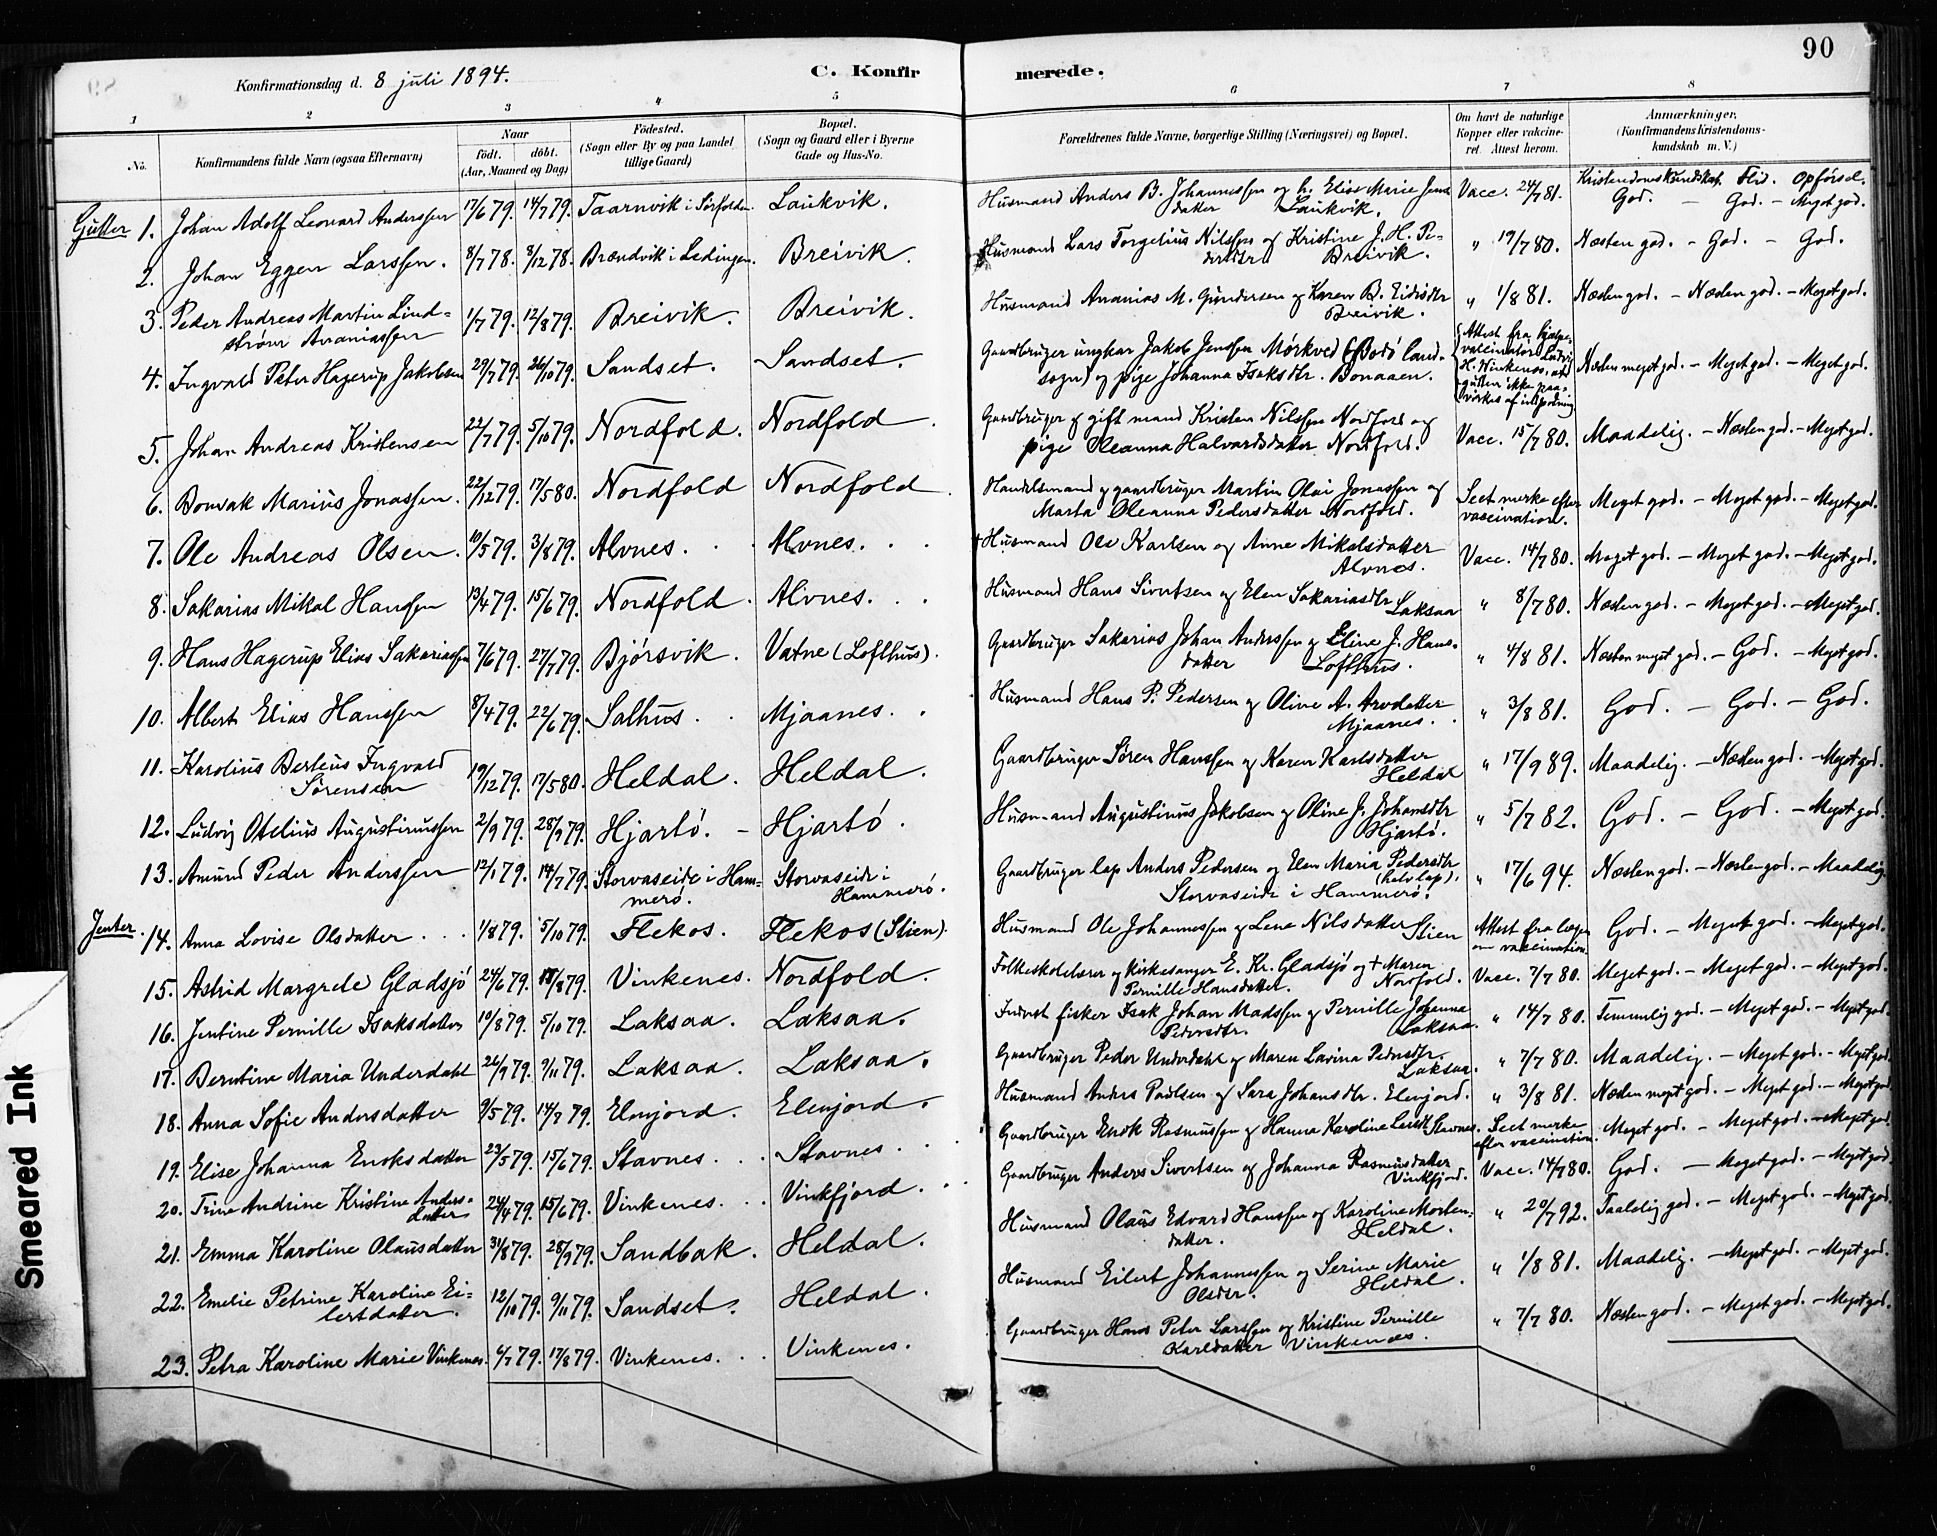 90
Konfirmationsdag d. 8 juli 1894.
C. Konfirmerede.
1 2 3 4 5 6 7 8
No.
Konfirmandens fulde Navn (ogsaa Efternavn)
Naar
födt. döbt.
(Aar, Maaned og Dag)
Födested.
(Sogn eller By og paa Landet
tillige Gaard)
Bopæl.
(Sogn og Gaard eller i Byerne
Gade og Hus-No.
Forældrenes fulde Navne, borgerlige Stilling (Næringsvei) og Bopæl.
Om havt de naturlige
Kopper eller vakcine-
ret. Attest herom.
Anmærkninger.
(Konfirmandens Kristendoms-
kundskab m. V.)
Kristendomskundskab. Flid. Opförsel.
Gutter 1. Johan Adolf Leonard Anderssen 17/6 79. 14/7 79. Taarnvik i Sørfolden. Laukvik. Husmand Anders B. Johannessen og h. Elise Marie Jens
datter Laukvik. Vacc. 24/7 81. God. — God. — Meget god.
2. Johan Eggen Larssen. 8/7 78. 8/12 78. Brændvik i Lødingen. Breivik. Husmand Lars Torgelius Nilssen og Kristine J. H. Pe-
dersdtr Breivik. " 19/7 80. Næsten god. — God. — God.
3. Peder Andreas Martin Lind-
strøm Ananiassen 1/7 79. 12/8 79. Breivik. Breivik. Husmand Ananias M. Gundersen og Karen B. Eidisdtr
Breivik. " 1/8 81. Næsten god. — Næsten god. — Meget god.
4. Ingvald Peter Hagerup Jakobsen 29/7 79. 26/10 79. Sandset. Sandset. Gaardbruger ungkar Jakob Jenssen Mørkved (Bodö land-
sogn) og pige Johanna Isaksdtr. Bonaaen. Attest fra hjælpe-
vaccinatör Ludvig
H. Vinkenes, at
gutten ikke paa-
virkes af indpodning Næsten meget god. — Meget god. — Meget god.
5. Johan Andreas Kristensen 22/7 79. 5/10 79. Nordfold. Nordfold. Gaardbruger og gift mand Kristen Nilssen Nordfold og
pige Oleanna Halvardsdatter Nordfold. Vacc. 15/7 80. Maadelig. — Næsten god. — Meget god.
6. Bonsak Marius Jonassen. 22/12 79. 17/5 80. Nordfold Nordfold. Handelsmand og gaardbruger Martin Olai Jonassen og
Marta Oleanna Pedersdatter Nordfold. Seet merke efter
vaccination. Meget god. — Meget god. — Meget god.
7. Ole Andreas Olsen. 10/5 79. 3/8 79. Alvnes. Alvnes. Husmand Ole Karlsen og Anne Mikalsdatter
Alvnes. Vacc. 14/7 80. Meget god. — Meget god. — Meget god.
8. Sakarias Mikal Hanssen 13/4 79. 15/6 79. Nordfold. Alvnes. Husmand Hans Sivertsen og Elen Sakariasdtr
Laksaa " 8/7 80. Næsten god. — Meget god. — Meget god.
9. Hans Hagerup Elias Sakariassen 7/6 79. 27/7 79. Bjørsvik. Vatne (Lofthus). Gaardbruger Sakarias Johan Anderssen og Eline J. Hans-
datter Lofthus. " 4/8 81. Næsten meget god. — God. — Meget god.
10. Albert Elias Hanssen 8/4 79. 22/6 79. Salhus. Mjaanes. Husmand Hans P. Pedersen og Oline A. Arvdatter
Mjaanes. " 3/8 81. God. — God. — God.
11. Karolius Berteus Ingvald
Sörensen 19/12 79. 17/5 80. Heldal. Heldal. Gaardbruger Sören Hanssen og Karen Karlsdatter
Heldal " 17/9 89. Maadelig. — Næsten god. — Meget god.
12. Ludvig Otelius Augustinussen 2/9 79. 28/9 79. Hjartö. — Hjartö. Husmand Augustinus Jakobsen og Oline J. Johansdtr
Hjartö. " 5/7 82. God. — God. — Meget god.
13. Amund Peder Anderssen 12/1 79. 14/7 79. Storvaseide i Ham-
merö. Storvaseide i
Hammerö. Gaardbruger lap Anders Pedersen og Elen Maria Pedersdtr
(halv lap).
Storvaseide i Hammerö. " 17/6 94. Næsten god. — Næsten god. — Maadelig.
Jenter. 14. Anna Lovise Olsdatter 1/8 79. 5/10 79. Flekos. Flekos (Stien). Husmand Ole Johannessen og Lene Nilsdatter Stien Attest fra lægen
om vakcination God. — Meget god. — Meget god.
15. Astrid Margrete Gladsjö 24/6 79. 17/8 79. Vinkenes. Nordfold. Folkeskolelærer og kirkesanger E. Kr. Gladsjö og † Maren
Pernille Hansdatter. Nordfold. Vacc. 7/7 80. Meget god. — Meget god. — Meget god.
16. Jentine Pernille Isaksdatter 10/8 79. 5/10 79. Laksaa. Laksaa. Inderst fisker Isak Johan Madssen og Pernille Johanna
Pedersdtr. Laksaa. " 14/7 80. Temmelig god. — Meget god. — Meget god.
17. Berntine Maria Underdahl 26/9 79. 9/11 79. Laksaa. Laksaa. Gaardbruger Peder Underdahl og Maren Lavina Pedersdtr.
Laksaa. " 7/7 80. Maadelig. — Meget god. — Meget god.
18. Anna Sofie Andersdatter 9/5 79. 14/7 79. Elvnjord. Elvnjord. Husmand Anders Paulsen og Sara Johansdtr. Elvnjord. " 3/8 81. Næsten meget god. — Meget god. — Meget god.
19. Elise Johanna Enoksdatter 23/5 79. 15/6 79. Stavnes. Stavnes. Gaardbruger Enok Rasmussen og Hanna Karoline Larsdtr Stavnes. Seet merke
efter vaccination. Meget god. — Meget god. — Meget god.
20. Trine Andrine Kristine Anders-
datter 24/4 79. 15/6 79. Vinkenes. Vinkfjord. Gaardbruger Anders Sivertsen og Johanna Rasmusdatter
Vinkfjord. Vacc. 14/7 80. God. — Meget god. — Meget god.
21. Emma Karoline Olausdatter 31/8 79. 28/9 79. Sandbak. Heldal. Husmand Olaus Edvard Hanssen og Karoline Morten-
datter. Heldal. " 20/7 92. Taalelig god. — Meget god. — Meget god.
22. Emelie Petrine Karoline Ei-
lertdatter. 12/10 79. 9/11 79. Sandset. Heldal. Husmand Eilert Johannessen og Serine Marie
Olsdtr. Heldal. " 1/8 81. Maadelig. — Meget god. — Meget god.
23. Petra Karoline Marie Vinkenes. 4/7 79. 17/8 79. Vinkenes. Vinkenes. Gaardbruger Hans Peter Larssen og Kristine Pernille
Karldatter Vinkenes. " 7/7 80. Næsten god. — Meget god. — Meget god.
Smeared Ink